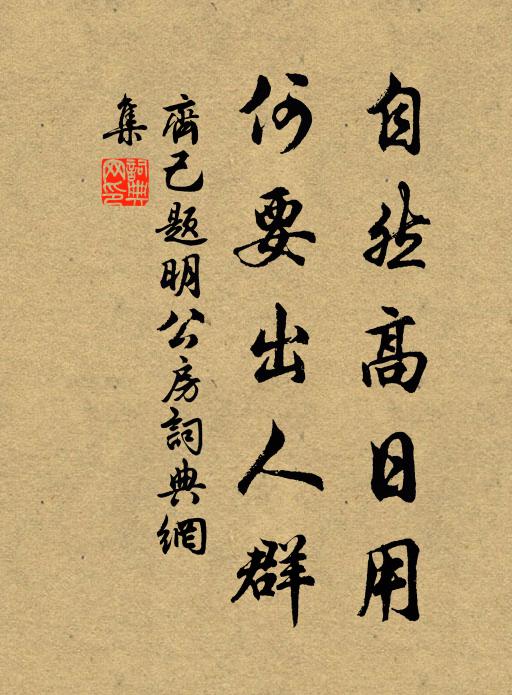 自然高日用
何要出人群
齊己題明公房詞典網
集
詞典网印